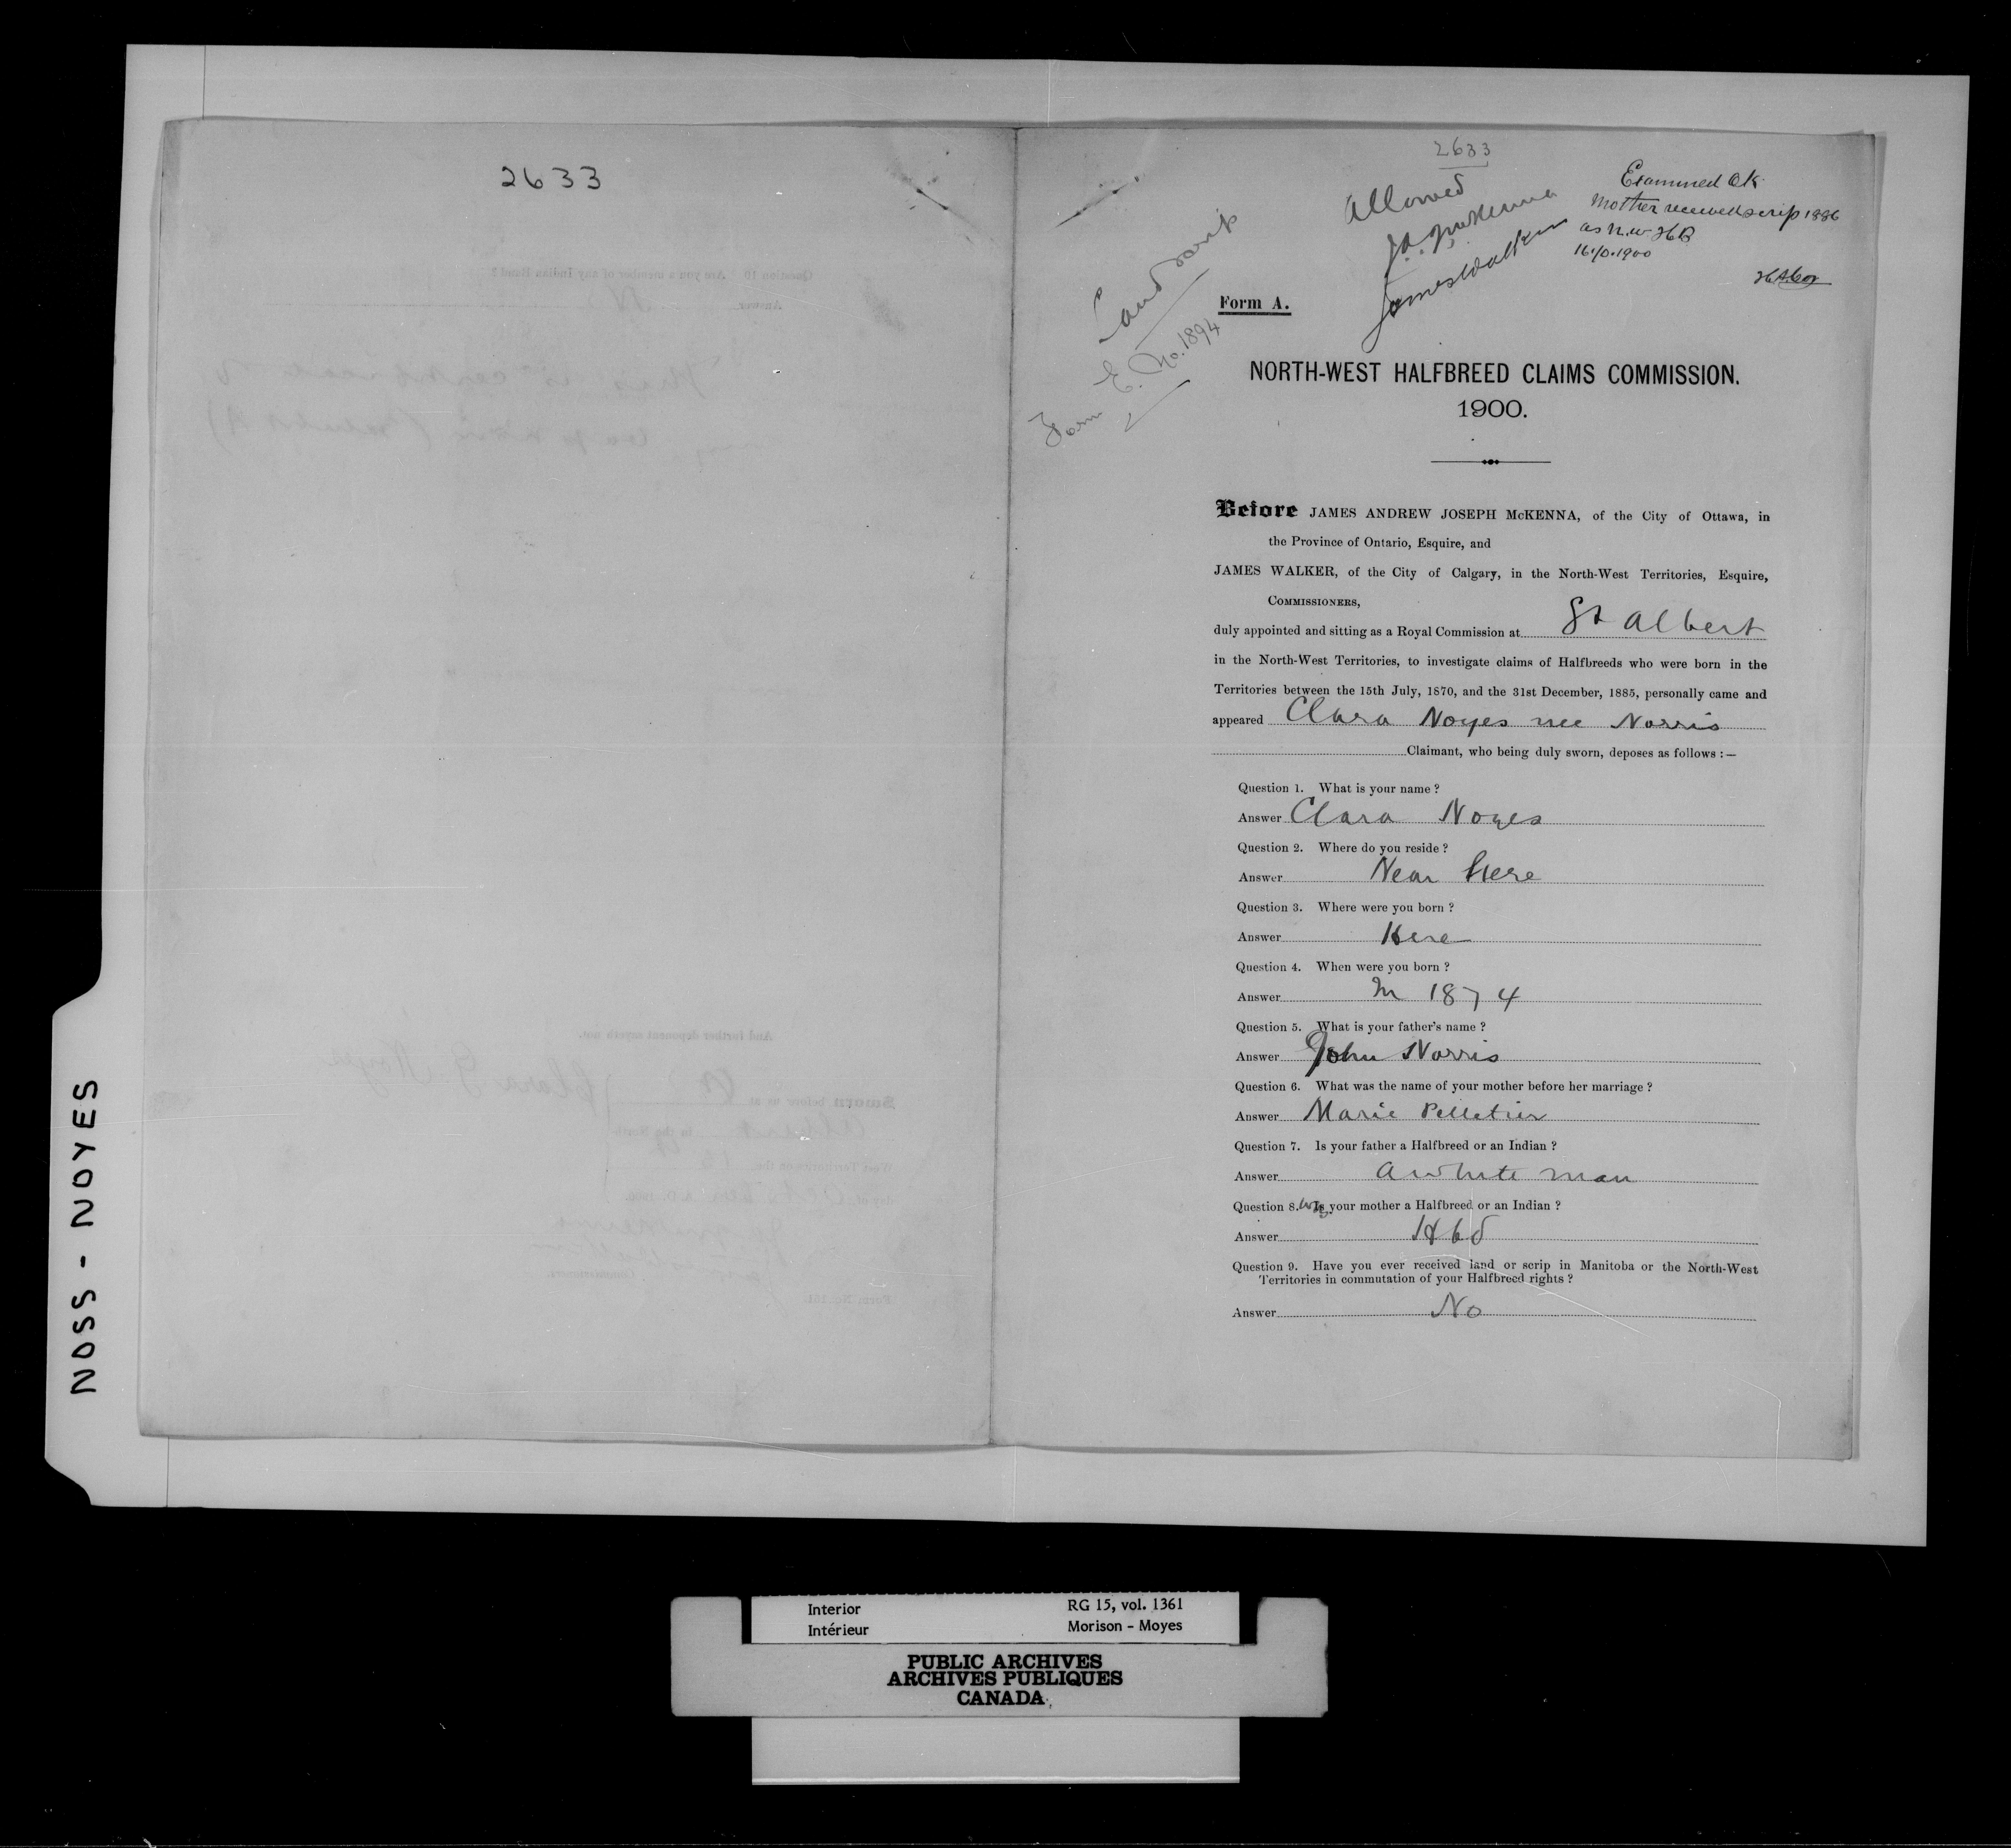 2633
Question 10. Are you a member of any Indian Band?
Answer
And further deponent sayeth not.
Clara G. Noyes
Sworn before us at
Albert in the North-
West Territories on the
day of A.D. 1900.
Commissioners.
2633
Allowed
J.A.J. McKenna
James Walker
Examined OK
Mother received scrip 1886
as N.W. HB
16/10.1900
Land scrip
Form E. No. 1894
Form A.
NORTH-WEST HALFBREED CLAIMS COMMISSION.
1900.
Before JAMES ANDREW JOSEPH McKENNA, of the City of Ottawa, in
the Province of Ontario, Esquire, and
JAMES WALKER, of the City of Calgary, in the North-West Territories, Esquire,
COMMISSIONERS,
duly appointed and sitting as a Royal Commission at St Albert
in the North-West Territories, to investigate claims of Halfbreeds who were born in the
Territories between the 15th July, 1870, and the 31st December, 1885, personally came and
appeared Clara Noyes nee Norris
Claimant, who being duly sworn, deposes as follows :—
Question 1. What is your name ?
Answer Clara Noyes
Question 2. Where do you reside ?
Answer Near Here
Question 3. Where were you born ?
Answer Here
Question 4. When were you born ?
Answer In 1874
Question 5. What is your father's name ?
Answer John Norris
Question 6. What was the name of your mother before her marriage ?
Answer Marie Pelletier
Question 7. Is your father a Halfbreed or an Indian ?
Answer A white man
Question 8. Is your mother a Halfbreed or an Indian ?
Answer Hbd
Question 9. Have you ever received land or scrip in Manitoba or the North-West
Territories in commutation of your Halfbreed rights ?
Answer No
NOSS - NOYES
Interior
Intérieur
RG 15, vol. 1361
Morison - Moyes
PUBLIC ARCHIVES
ARCHIVES PUBLIQUES
CANADA